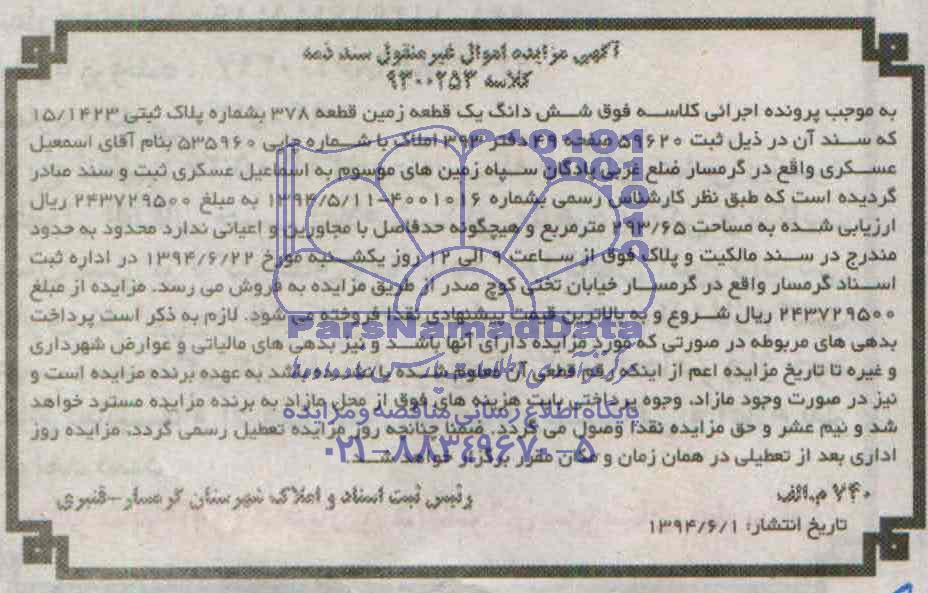 آگهی مزایده اموال غیر منقول سند ذمه
کلاسه ۹۳۰۰۲۵۳
به موجب پرونده اجرائی کلاسه فوق شش دانگ یک قطعه زمین قطعه ۳۷۸ بشماره پلاک ثبتی ۱۵/۱۴۲۳
که سند آن در ذیل ثبت ۵۹۶۲۰ صفحه ۴۹ دفتر ۳۹۳ املاک با شماره چاپی ۵۳۵۹۶۰ بنام آقای اسمعیل
عسکری واقع در گرمسار ضلع غربی پادگان سپاه زمین های موسوم به اسماعیل عسکری ثبت و سند صادر
گردیده است که طبق نظر کارشناس رسمی بشماره ۴۰۰۱۰۱۶-۱۳۹۴/۵/۱۱ به مبلغ ۲۴۳۷۲۹۵۰۰ ریال
ارزیابی شده به مساحت ۲۹۳/۶۵ مترمربع و هیچگونه حدفاصل با مجاورین و اعیانی ندارد محدود به حدود
مندرج در سند مالکیت و پلاک فوق از ساعت ۹ الی ۱۲ روز یکشنبه مورخ ۱۳۹۴/۶/۲۲ در اداره ثبت
اسناد گرمسار واقع در گرمسار خیابان تختی کوچ صدر از طریق مزایده به فروش می رسد. مزایده از مبلغ
۲۴۳۷۲۹۵۰۰ ریال شروع و به بالاترین قیمت پیشنهادی نقدا فروخته می شود. لازم به ذکر است پرداخت
بدهی های مربوطه در صورتی که مورد مزایده دارای آنها باشد و نیز بدهی های مالیاتی و عوارض شهرداری
و غیره تا تاریخ مزایده اعم از اینکه رقم قطعی آن معلوم شده یا نشده باشد به عهده برنده مزایده است و
نیز در صورت وجود مازاد، وجوه پرداختی بابت هزینه های فوق از محل مازاد به برنده مزایده مسترد خواهد
شد و نیم عشر و حق مزایده نقدا وصول می گردد. ضمنا چنانچه روز مزایده تعطیل رسمی گردد، مزایده روز
اداری بعد از تعطیلی در همان زمان و مکان مقرر برگزار خواهد شد.
۷۴۰ م.الف
رئیس ثبت اسناد و املاک شهرستان گرمسار-قنبری
تاریخ انتشار: ۱۳۹۴/۶/۱
ParsNamadData
پایگاه اطلاع رسانی مناقصه و مزایده
۰۲۱-۸۸۳۴۹۶۷۰-۵